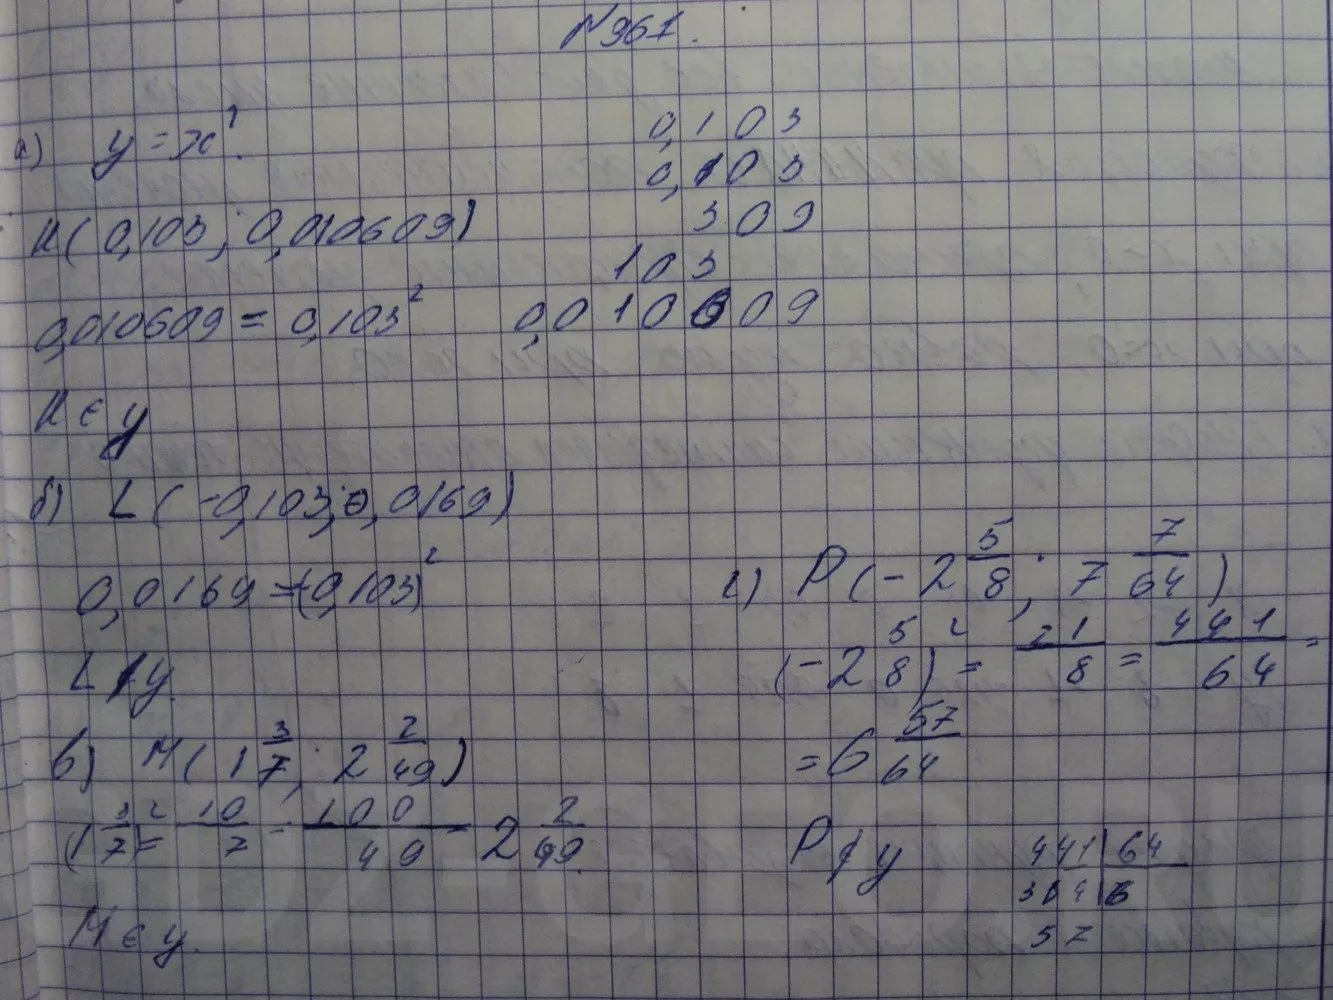 №961.
а) y = x².
K(0,103; 0,010609)
0,010609 = 0,103²
K ∈ y
0,103
0,103
309
103
0,010609
б) L(-0,103; 0,0169)
0,0169 = (-0,103)²
L ∉ y.
в) M(1 3/7; 2 2/49)
(1 3/7)² = 10/7 = 100/49 = 2 2/49.
M ∈ y.
г) P(-2 5/8; 7 7/64)
(-2 5/8)² = 21/8 = 441/64 =
= 6 57/64
P ∉ y
441 | 64
384 | 6
57